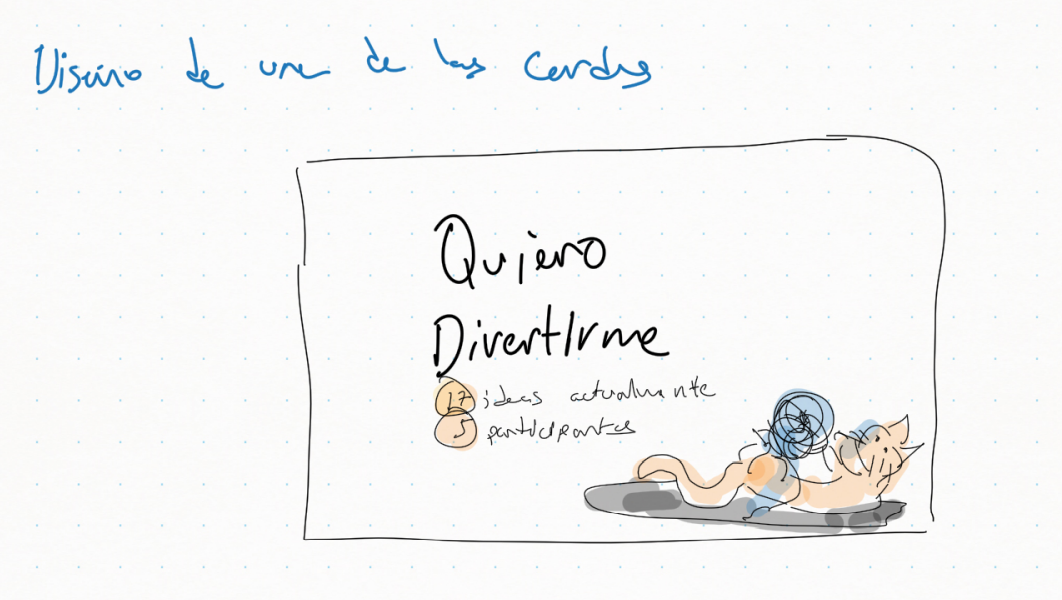 Diseño de una de las Cards
Quiero
DivertIrme
17 ideas actualmente
5 participantes